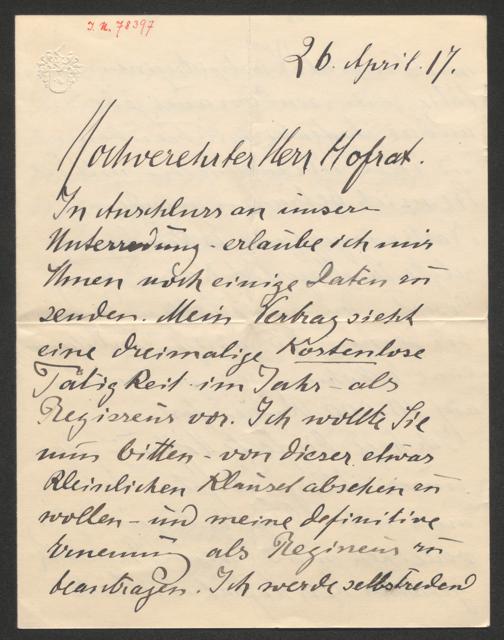 I.N. 78397
26. April. 17.
Hochverehrter Herr Hofrat.
In Anschluss an unsere
Unterredung - erlaube ich mir
Ihnen noch einige Daten zu
senden. Mein Vertrag sieht
eine dreimalige Kostenlose
Tätigkeit im Jahr - als
Regisseur vor. Ich wollte Sie
nun bitten - von dieser etwas
kleinlichen Klausel absehen zu
wollen - und meine definitive
Ernennung als Regisseur zu
beantragen. Ich werde selbstredend